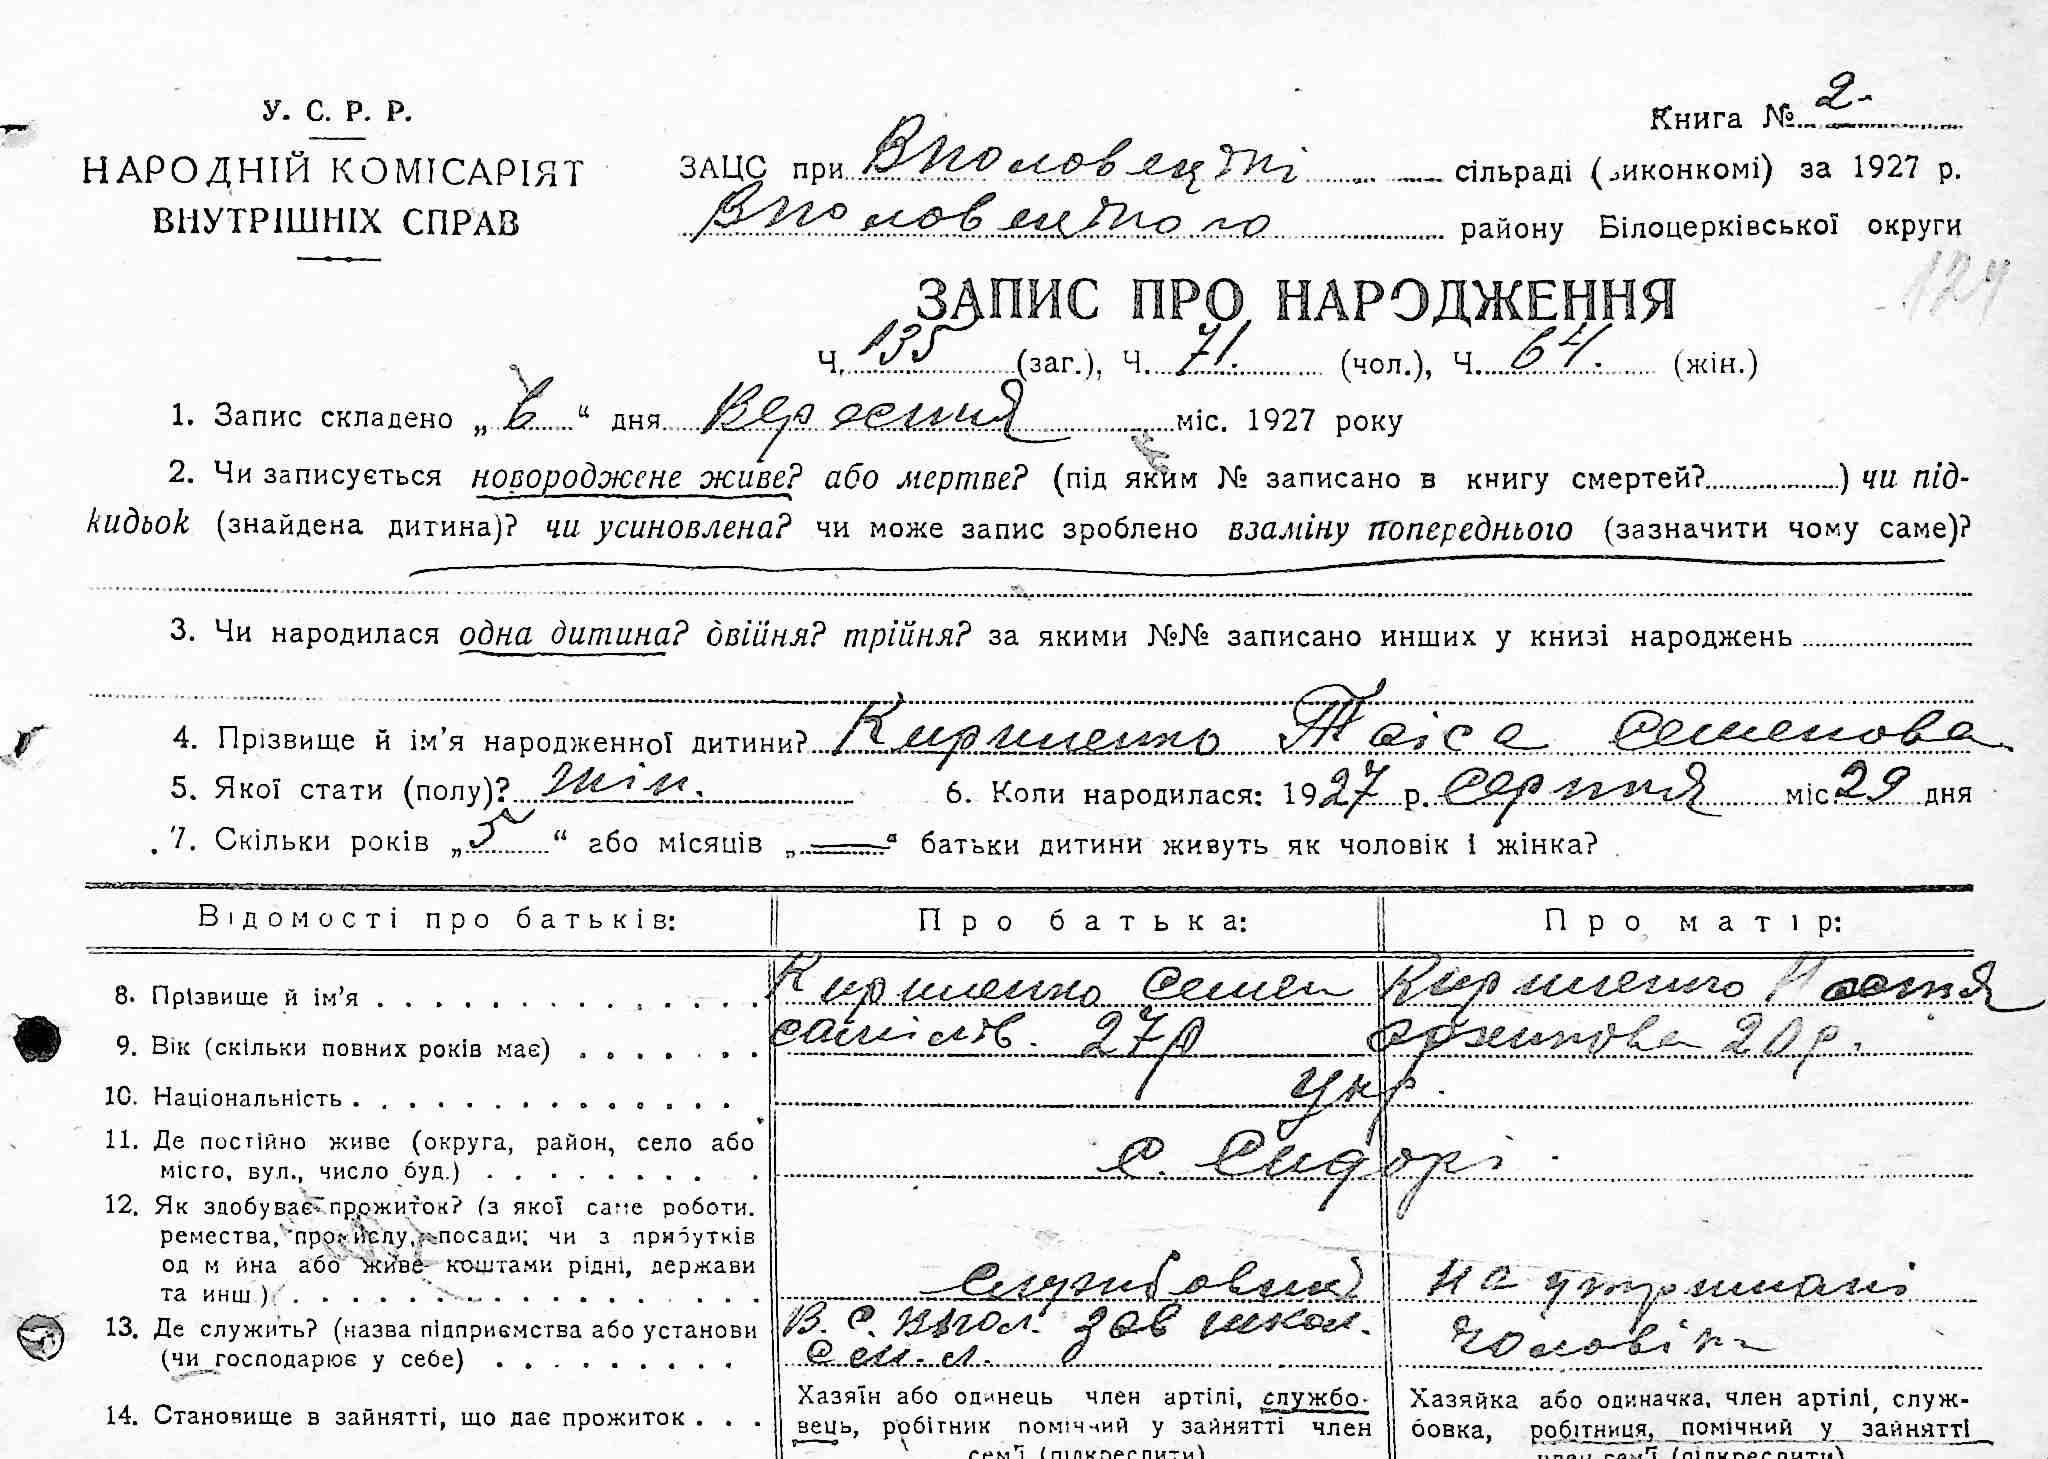 У. С. Р. Р.
НАРОДНІЙ КОМІСАРІЯТ
ВНУТРІШНІХ СПРАВ
Книга № 2
ЗАЦС при Вполовецькі сільраді (виконкомі) за 1927 р.
Вполовецького району Білоцерківської округи
124
ЗАПИС ПРО НАРОДЖЕННЯ
Ч. 135 (заг.), Ч. 71. (чол.), Ч. 64. (жін.)
1. Запис складено „ 6 “ дня Вересня міс. 1927 року
2. Чи записується новороджене живе? або мертве? (під яким № записано в книгу смертей?) чи під-
кидьок (знайдена дитина)? чи усиновлена? чи може запис зроблено взаміну попереднього (зазначити чому саме)?
3. Чи народилася одна дитина? двійня? трійня? за якими №№ записано инших у книзі народжень
4. Прізвище й ім’я народженної дитини? Кириченко Таіса Семенова
5. Якої стати (полу)? жін. 6. Коли народилася: 1927 р. Серпня міс. 29 дня
7. Скільки років „ 5 “ або місяців „ — “ батьки дитини живуть як чоловік і жінка?
Відомості про батьків: Про батька: Про матір:
8. Прізвище й ім’я Кириченко Семен Кириченко Настя
9. Вік (скільки повних років має) 27 р 20 р.
10. Національність укр.
11. Де постійно живе (округа, район, село або
місто, вул., число буд.) с. Сидорі
12. Як здобуває прожиток? (з якої саме роботи.
ремества, промислу, посади; чи з прибутків
од м йна або живе коштами рідні, держави
та инш.) Службовий На утримані
13. Де служить? (назва підприємства або установи В. С. Зав школ. чоловіка
(чи господарює у себе)
14. Становище в зайнятті, що дає прожиток
Хазяїн або одинець член артілі, службо-
вець, робітник помічний у зайнятті член
сем’ї (підкреслити)
Хазяйка або одиначка, член артілі, служ-
бовка, робітниця, помічний у зайнятті
член сем’ї (підкреслити)